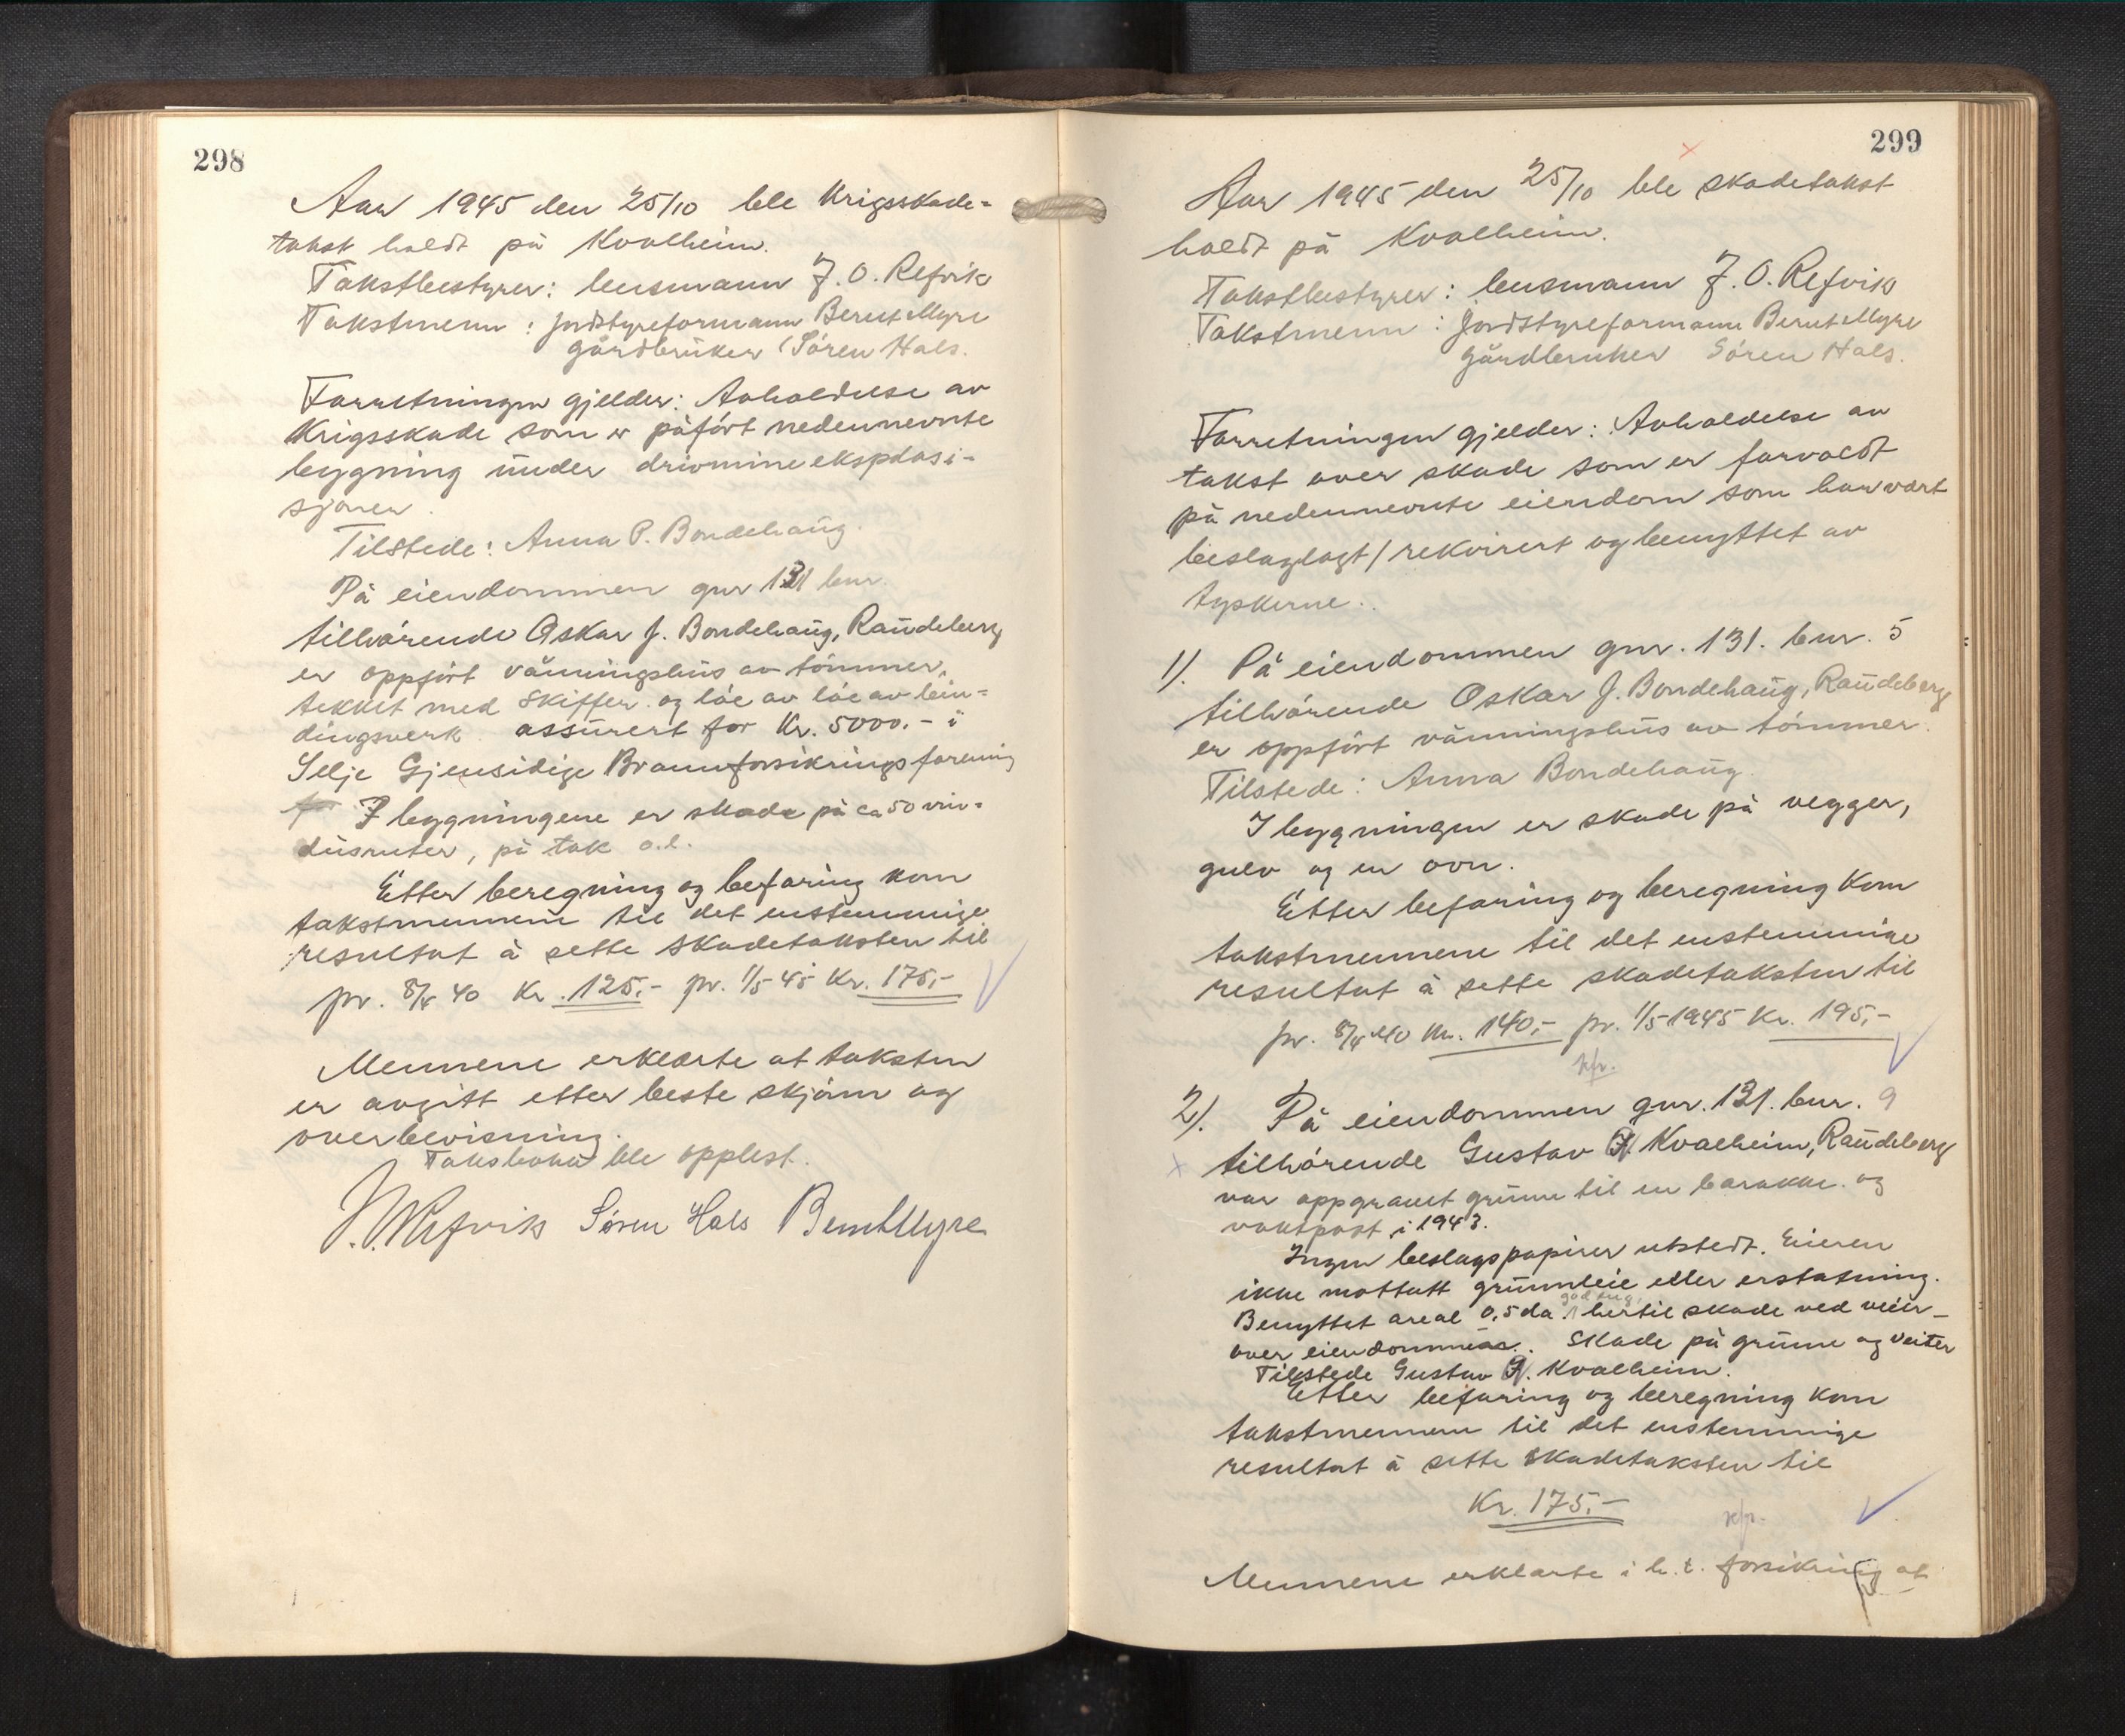 298
Aar 1945 den 25/10 ble Krigsskade-
takst holdt på Kvalheim.
Takstbestyrer: lensmann J. O. Refvik
Takstmenn: jordstyreformann Bernt Myre
gårdbruker Sören Hals.
Forretningen gjelder: Avholdelse av
Krigsskade som er påfört nedennevnte
bygning under drivmineeksplosi-
sjonen.
Tilstede: Anna P. Bondehaug.
På eiendommen gnr 131 bnr.
tilhörende Oskar J. Bondehaug, Raudeberg
er oppfört våningshus av tömmer,
tekket med skiffer og löe av löe av bin-
dingsverk assurert for Kr. 5000.- i
Selje Gjensidige Brannforsikringsforening
I bygningene er skade på ca 50 vin-
dusruter, på tak o.l.
Etter beregning og befaring kom
takstmennene til det enstemmige
resultat å sette skadetaksten til
pr. 8/4 40 Kr. 125.- pr. 1/5-45 Kr. 175,-
Mennene erklærte at taksten
er avgitt etter beste skjönn og
overbevisning.
Takstboka ble opplest.
J. O. Refvik Sören Hals Bernt Myre
299
Aar 1945 den 25/10 ble skadetakst
holdt på Kvalheim.
Takstbestyrer: lensmann J. O. Refvik
Takstmenn: Jordstyreformann Bernt Myre
gårdbruker Sören Hals.
Forretningen gjelder: Avholdelse av
takst over skade som er forvoldt
på nedennevnte eiendom som har vært
beslaglagt/rekvirert og benyttet av
tyskerne.
1). På eiendommen gnr. 131. bnr. 5
tilhörende Oskar J. Bondehaug, Raudeberg
er oppfört våningshus av tömmer.
Tilstede: Anna Bondehaug.
I bygningen er skade på vegger,
gulv og en ovn.
Etter befaring og beregning kom
takstmennene til det enstemmige
resultat å sette skadetaksten til
pr. 8/4 40 Kr. 140,- pr. 1/5 1945 Kr. 195,-
2). På eiendommen gnr. 131. bnr. 9
tilhörende Gustav J. Kvalheim, Raudeberg
var oppgravet grunn til en barakke og
vaktpost i 1943.
Ingen beslagspapirer utstedt. Eieren
ikke mottatt grunnleie eller erstatning.
Benyttet areal 0,5 da. hertil skade ved veier
over eiendommen. Skade på grunn og veiter
Tilstede Gustav J. Kvalheim.
Etter befaring og beregning kom
takstmennene til det enstemmige
resultat å sette skadetaksten til
Kr. 175.-
Mennene erklærte i h.t. forsikring at